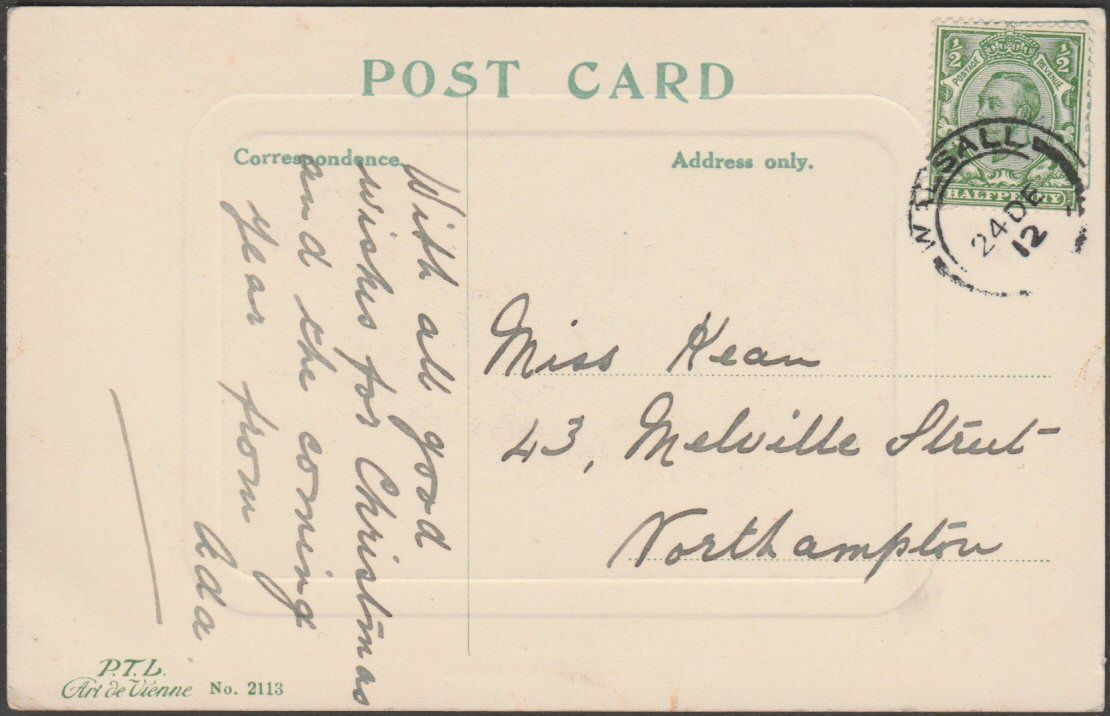 POST CARD
Correspondence.
Address only.
½ ½
POSTAGE REVENUE
HALFPENNY
WILSALL
24 DE
12
With all good
wishes for Christmas
and the coming
year from
Ada
Miss Kean
43, Melville Street
Northampton
P.T.L.
Art de Vienne No. 2113